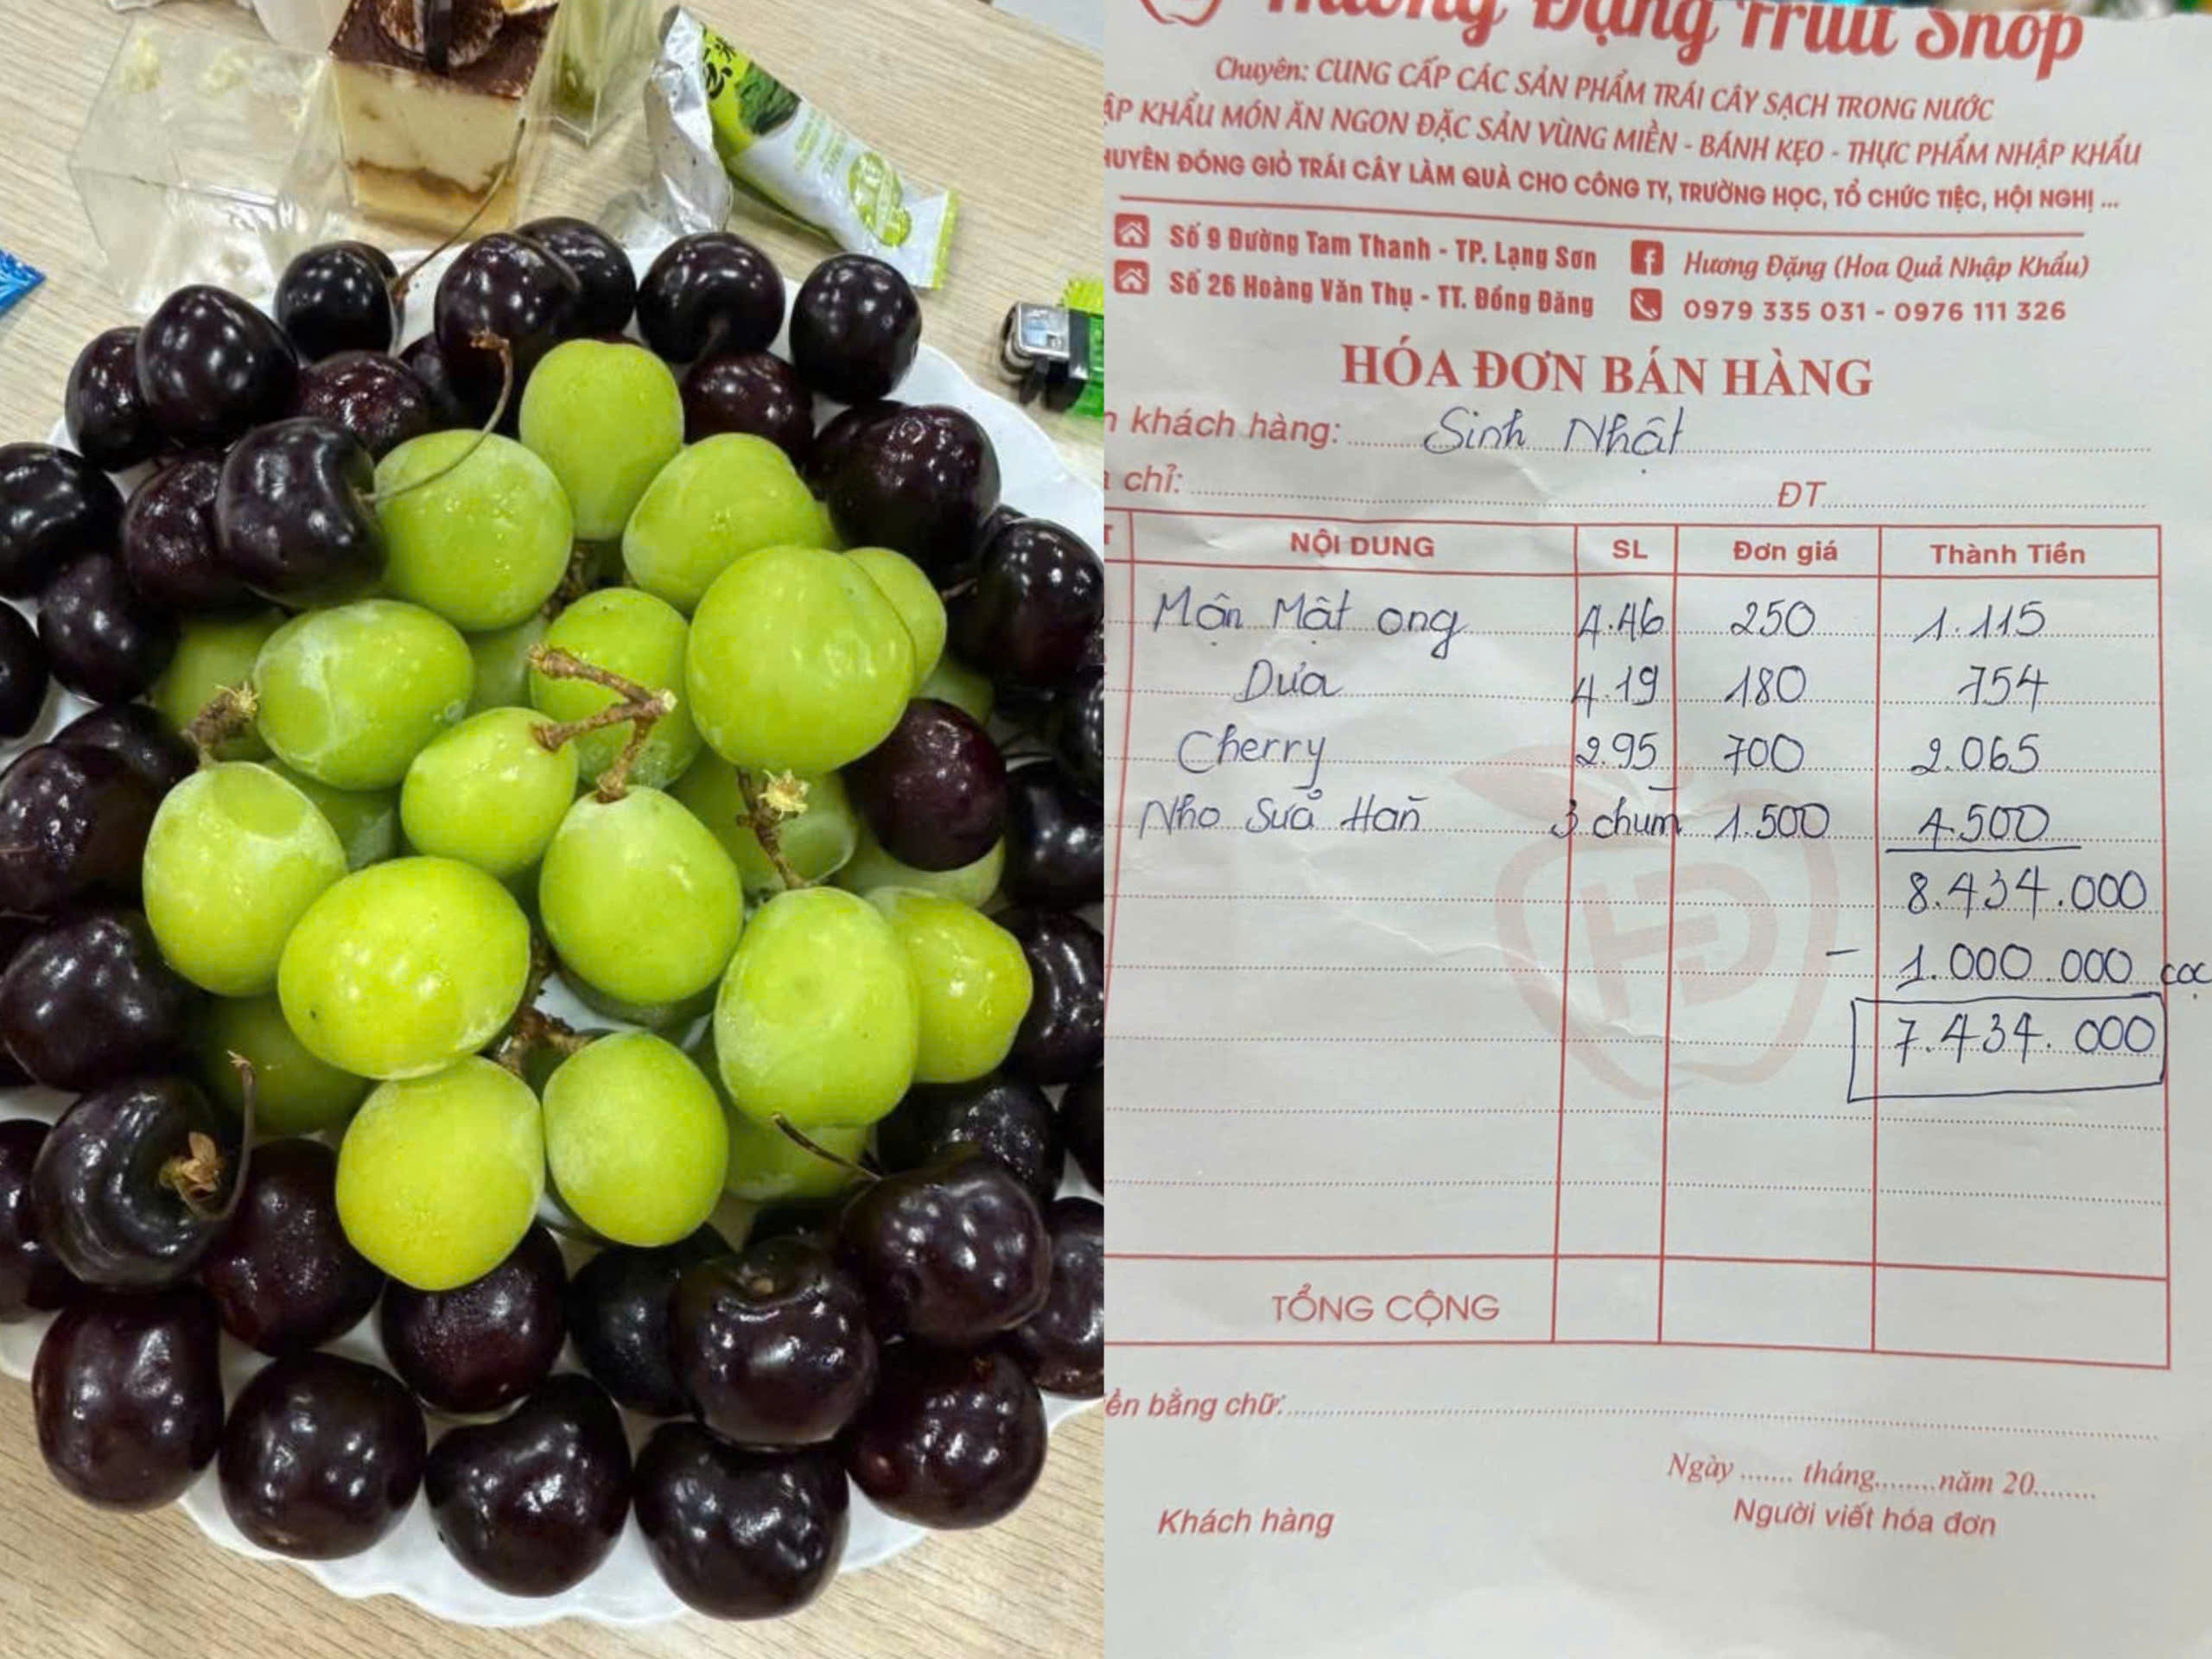 Hương Đặng Fruit Shop
Chuyên: CUNG CẤP CÁC SẢN PHẨM TRÁI CÂY SẠCH TRONG NƯỚC
ẬP KHẨU MÓN ĂN NGON ĐẶC SẢN VÙNG MIỀN - BÁNH KẸO - THỰC PHẨM NHẬP KHẨU
HUYÊN ĐÓNG GIỎ TRÁI CÂY LÀM QUÀ CHO CÔNG TY, TRƯỜNG HỌC, TỔ CHỨC TIỆC, HỘI NGHỊ ...
Số 9 Đường Tam Thanh - TP. Lạng Sơn
Số 26 Hoàng Văn Thụ - TT. Đồng Đăng
Hương Đặng (Hoa Quả Nhập Khẩu)
0979 335 031 - 0976 111 326
HÓA ĐƠN BÁN HÀNG
n khách hàng: Sinh Nhật
chỉ: ĐT
T NỘI DUNG SL Đơn giá Thành Tiền
Mận Mật ong 4.46 250 1.115
Dưa 4.19 180 754
Cherry 2.95 700 2.065
Nho Sữa Hàn 3 chùm 1.500 4.500
8.434.000
- 1.000.000 cọc
7.434.000
HD
TỔNG CỘNG
ền bằng chữ:
Ngày ....... tháng........năm 20........
Khách hàng Người viết hóa đơn